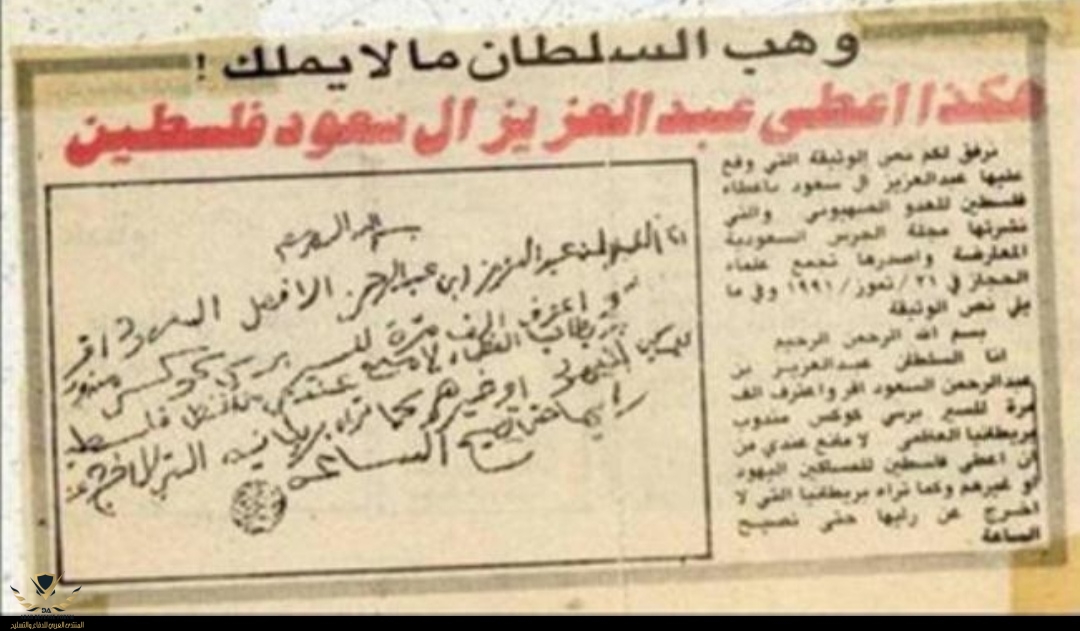 وهب السلطان ما لا يملك !
هكذا اعطى عبدالعزيز ال سعود فلسطين
نرفق لكم نص الوثيقة التي وقع
عليها عبدالعزيز ال سعود باعطاء
فلسطين للعدو الصهيوني والتي
نشرتها مجلة الحرس السعودية
المعارضة واصدرها تجمع علماء
الحجاز في ٢١/تموز/١٩٩١ وفي ما
يلي نص الوثيقة
بسم الله الرحمن الرحيم
انا السلطان عبدالعزيز بن
عبدالرحمن السعود اقر واعترف الف
مرة للسير برسي كوكس مندوب
بريطانيا العظمى لا مانع عندي من
ان اعطي فلسطين للمساكين اليهود
او غيرهم وكما تراه بريطانيا التي لا
اخرج عن رايها حتى تصيح
الساعة
انا السلطان عبد العزيز ابن عبد الرحمن الفيصل السعود اقر
واعترف الف مرة للسر برسي كوكس مندوب
بريطانيا العظمى لا مانع عندي
او غيرهم كما تراه بريطانيا التي لا اخرج عن
رايها حتى تصيح الساعة
المنتدى العربي للدفاع والتسليح